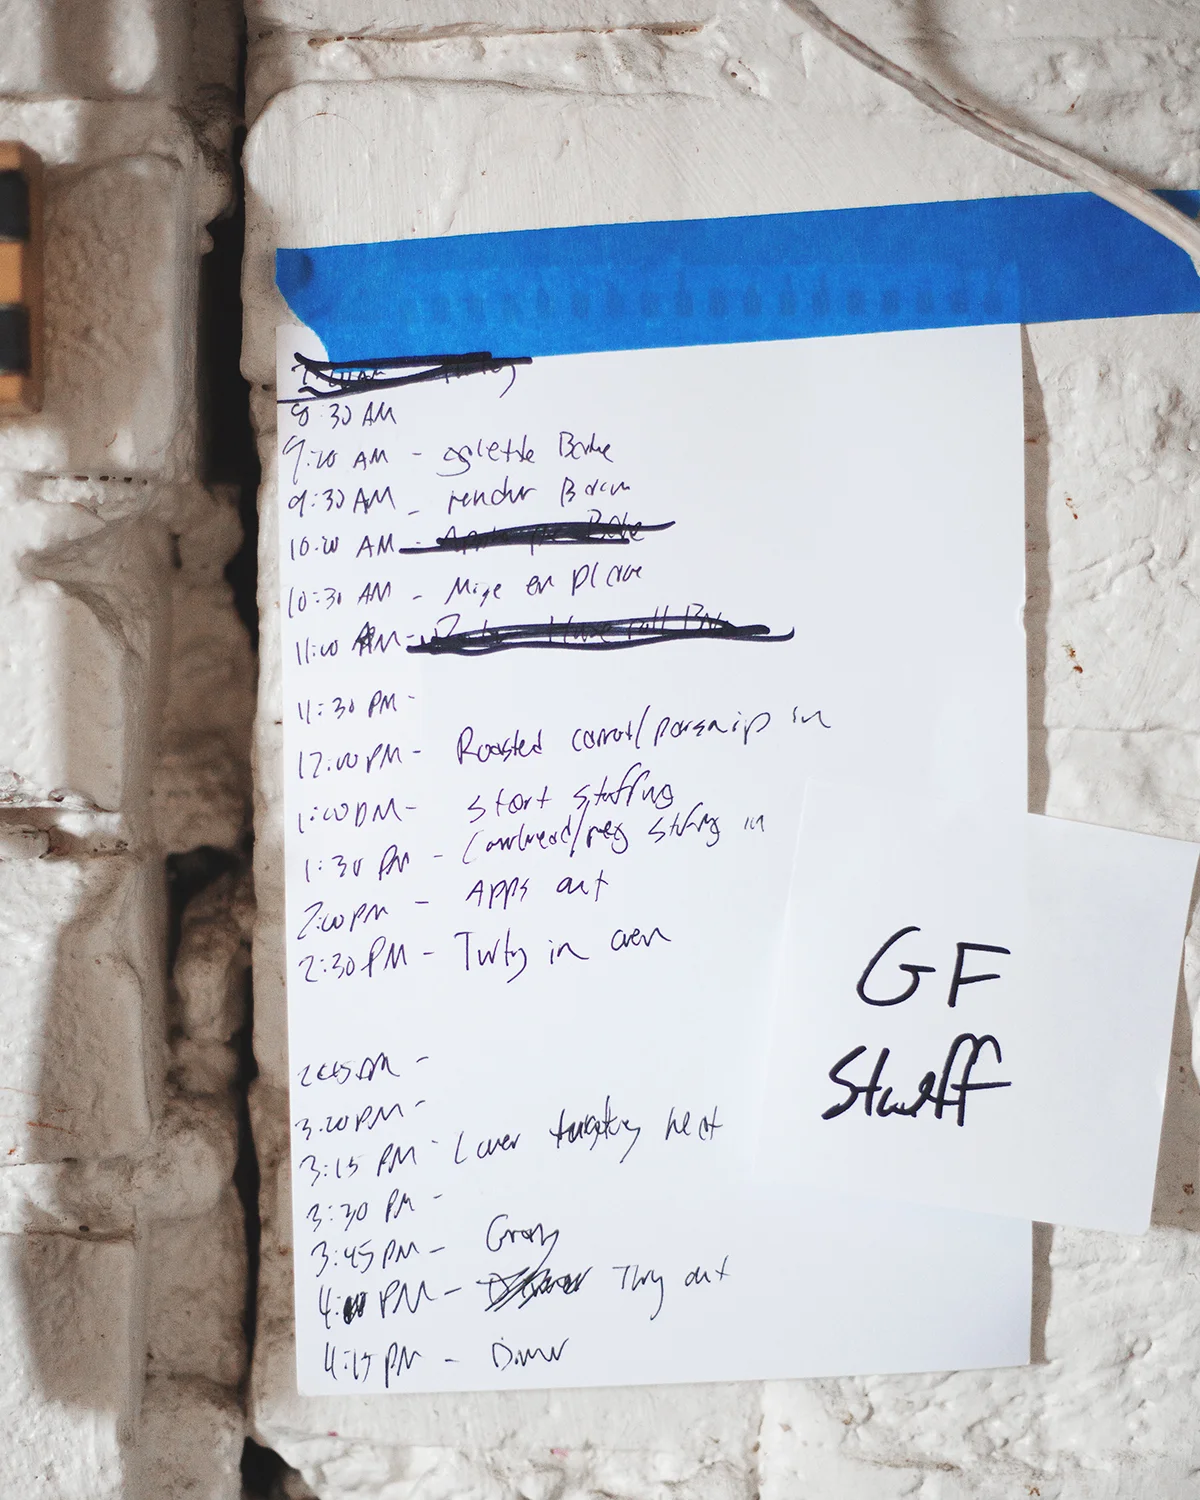 8:30 AM
9:00 AM - galette Bake
9:30 AM - render Bacon
10:00 AM -
10:30 AM - Mise en place
11:00 AM -
11:30 PM -
12:00 PM - Roasted carrot/parsnip in
1:00 PM - start stuffing
1:30 PM - Cornbread/veg stuffing in
2:00 PM - Apps out
2:30 PM - Turky in oven
2:45 PM -
3:00 PM -
3:15 PM - Lower heat
3:30 PM -
3:45 PM - Gravy
4:00 PM - Turky out
4:15 PM - Dinner
GF
Stuff